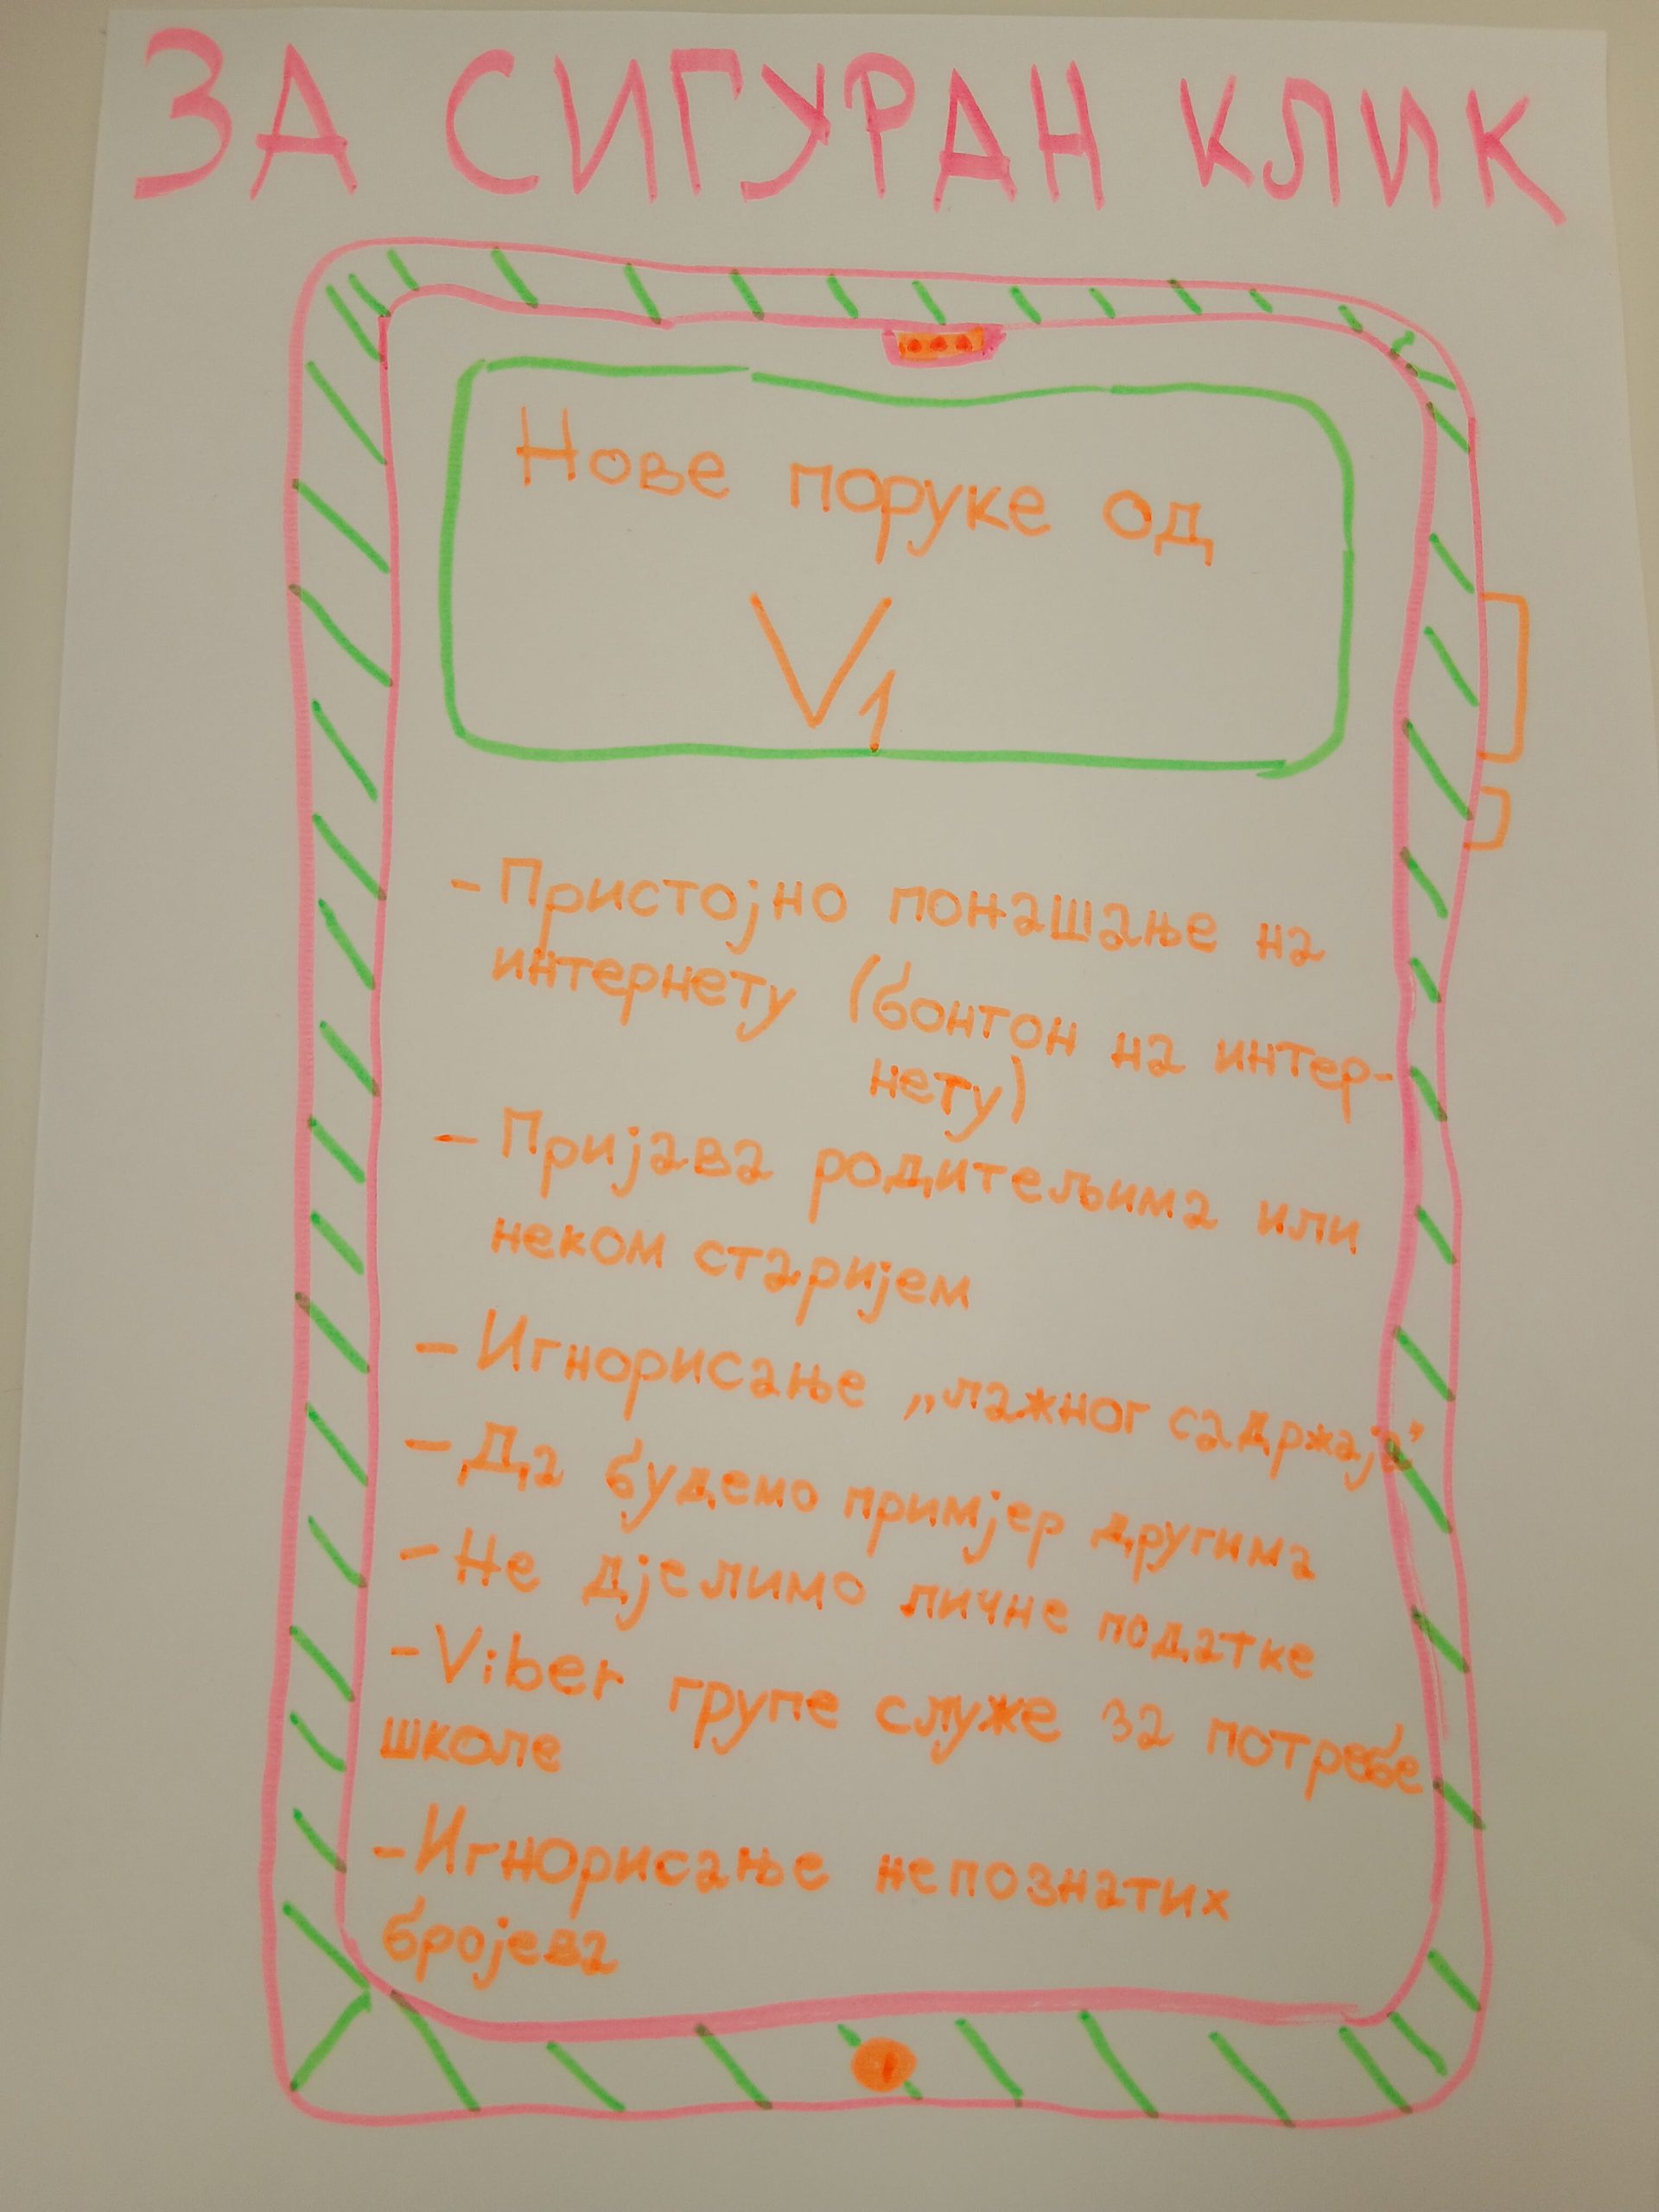 ЗА СИГУРАН КЛИК
Нове поруке од
V1
- Пристојно понашање на
интернету (бонтон на интер-
нету)
- Пријава родитељима или
неком старијем
- Игнорисање „лажног садржаја”
- Да будемо примјер другима
- Не дјелимо личне податке
- Viber групе служе за потребе
школе
- Игнорисање непознатих
бројева